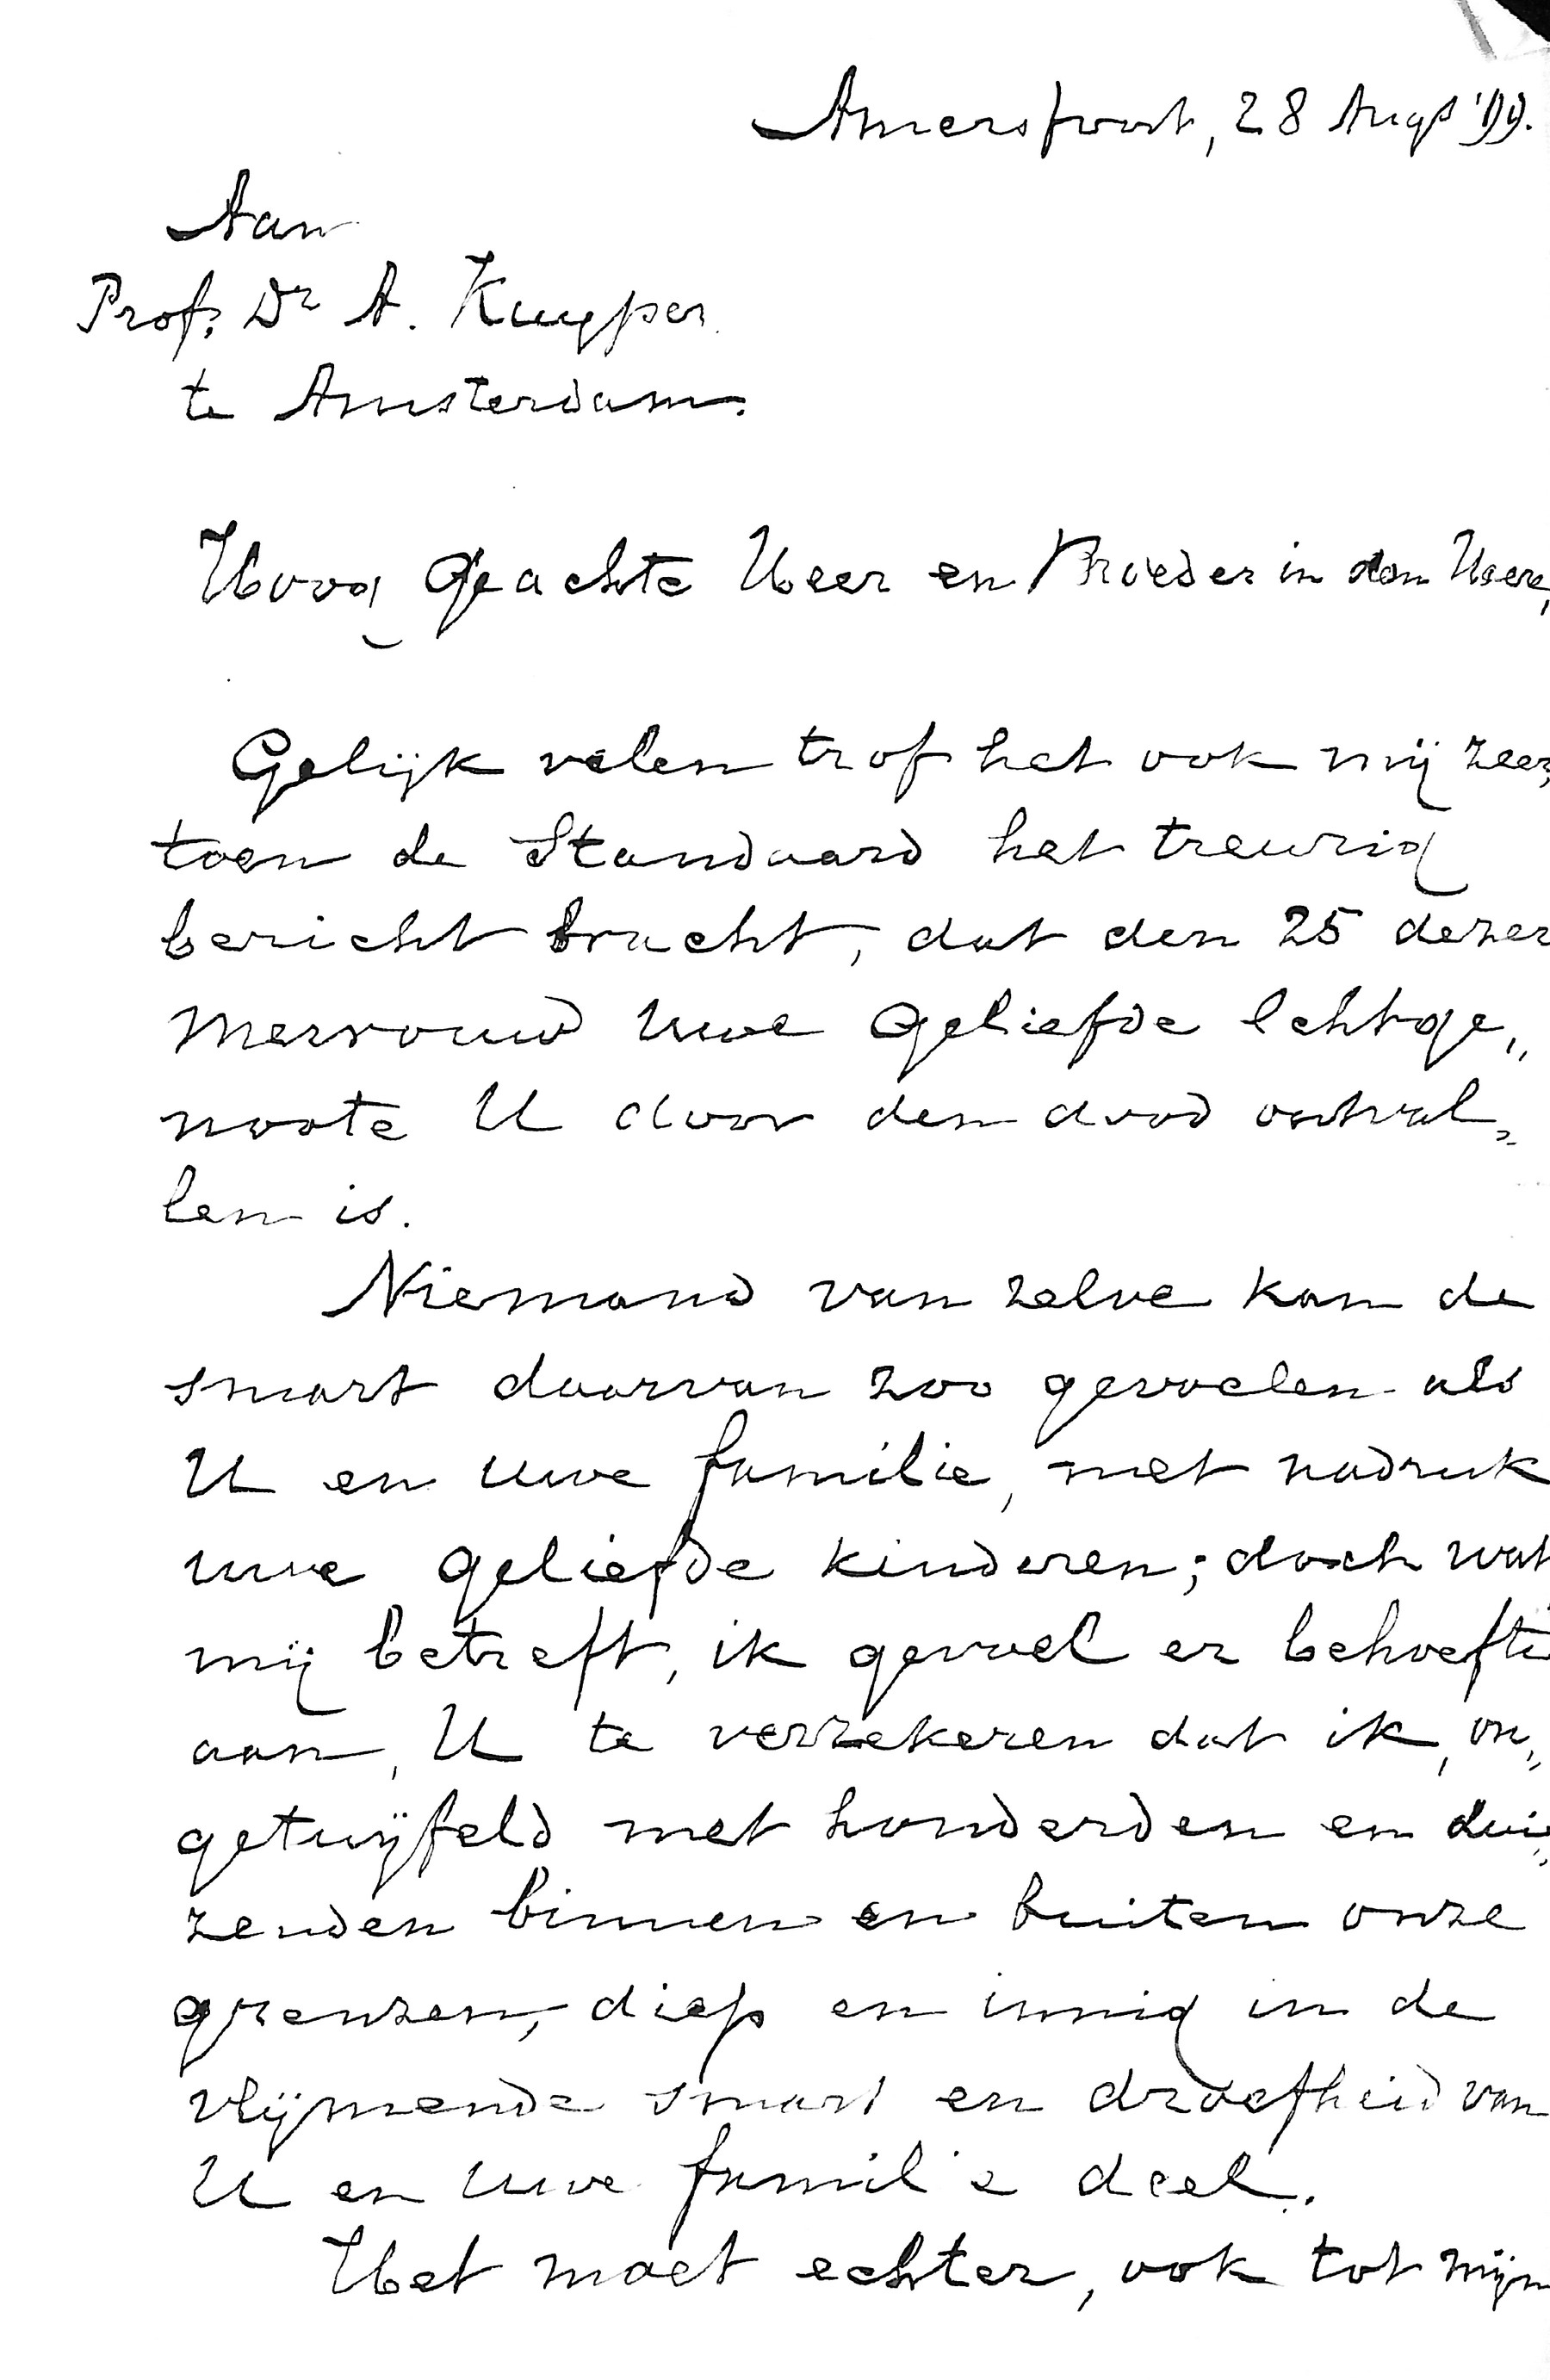 Amersfoort, 28 Augs '99.
Aan
Prof. Dr A. Kuyper
te Amsterdam.
Hoog Geachte Heer en Broeder in den Heere,
Gelijk velen trof het ook mij zeer,
toen de Standaard het treurig
bericht bracht, dat den 25 dezer
Mevrouw Uwe geliefde Echtge„
noote U door den dood ontval„
len is.
Niemand van zelve kan de
smart daarvan zoo gevoelen als
U en Uwe familie, met nadruk
uwe geliefde kinderen; doch wat
mij betreft, ik gevoel er behoefte
aan, U te verzekeren dat ik, on„
getwijfeld met honderden en dui„
zenden binnen en buiten onze
grenzen, diep en innig in de
vlijmende smart en droefheid van
U en Uwe familie deel.
Het moet echter, ook tot mijn